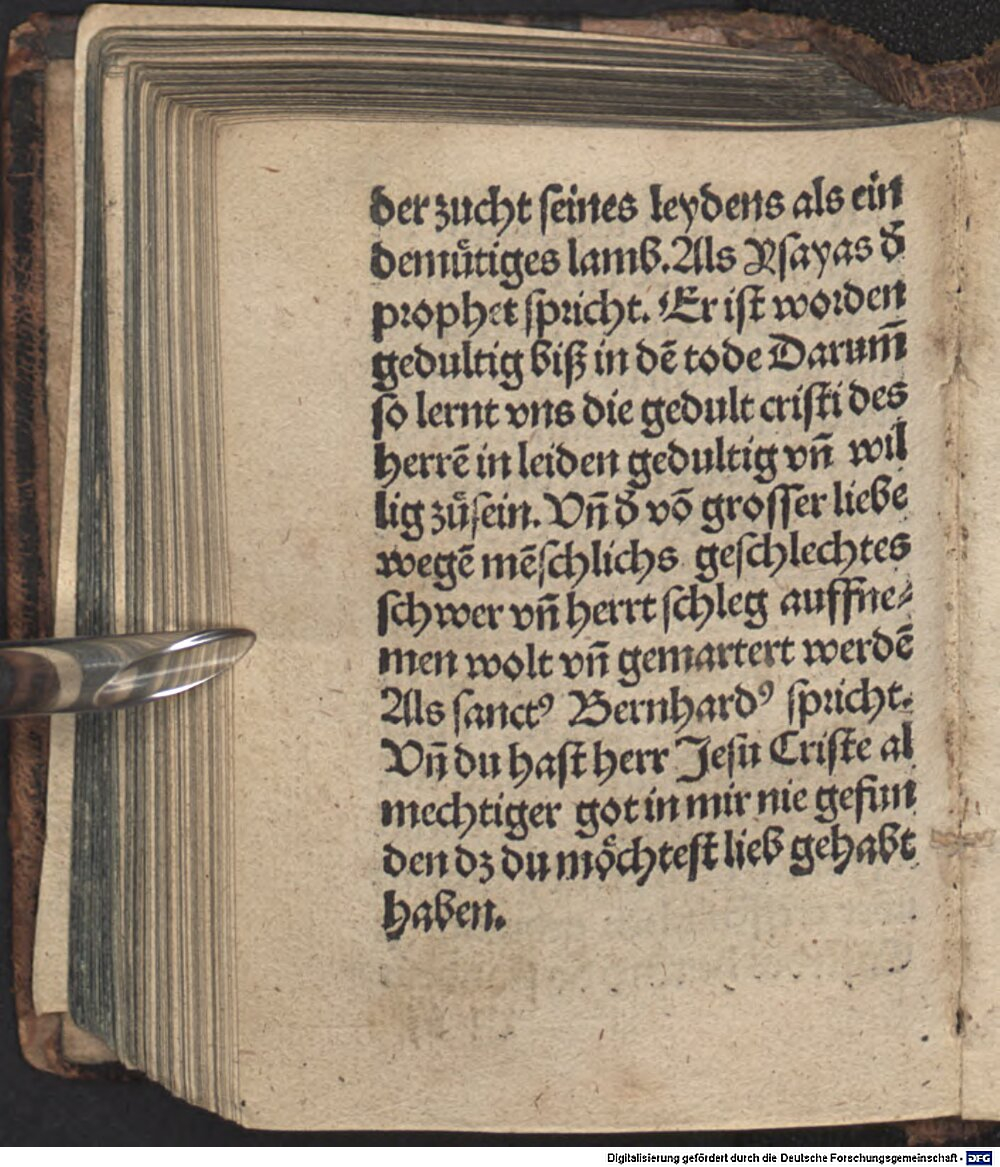 der zucht ſeines leydens als ein
demuͤtiges lamb. Als Yſayas đ
prophet ſpricht. Er iſt worden
gedultig biß in dē tode Darum̄
ſo lernt vns die gedult criſti des
herrē in leiden gedultig vn̄ wil
lig zuͤſein. Vn̄ đ vō groſſer liebe
wegē mēſchlichs geſchlechtes
ſchwer vn̄ herrt ſchleg auffne⸗
men wolt vn̄ gemartert werdē
Als ſanctꝰ Bernhardꝰ ſpricht.
Vn̄ du haſt herr Jeſu Criſte al
mechtiger got in mir nie gefun
den dz du moͤchteſt lieb gehabt
haben.
Digitalisierung gefördert durch die Deutsche Forschungsgemeinschaft - DFG